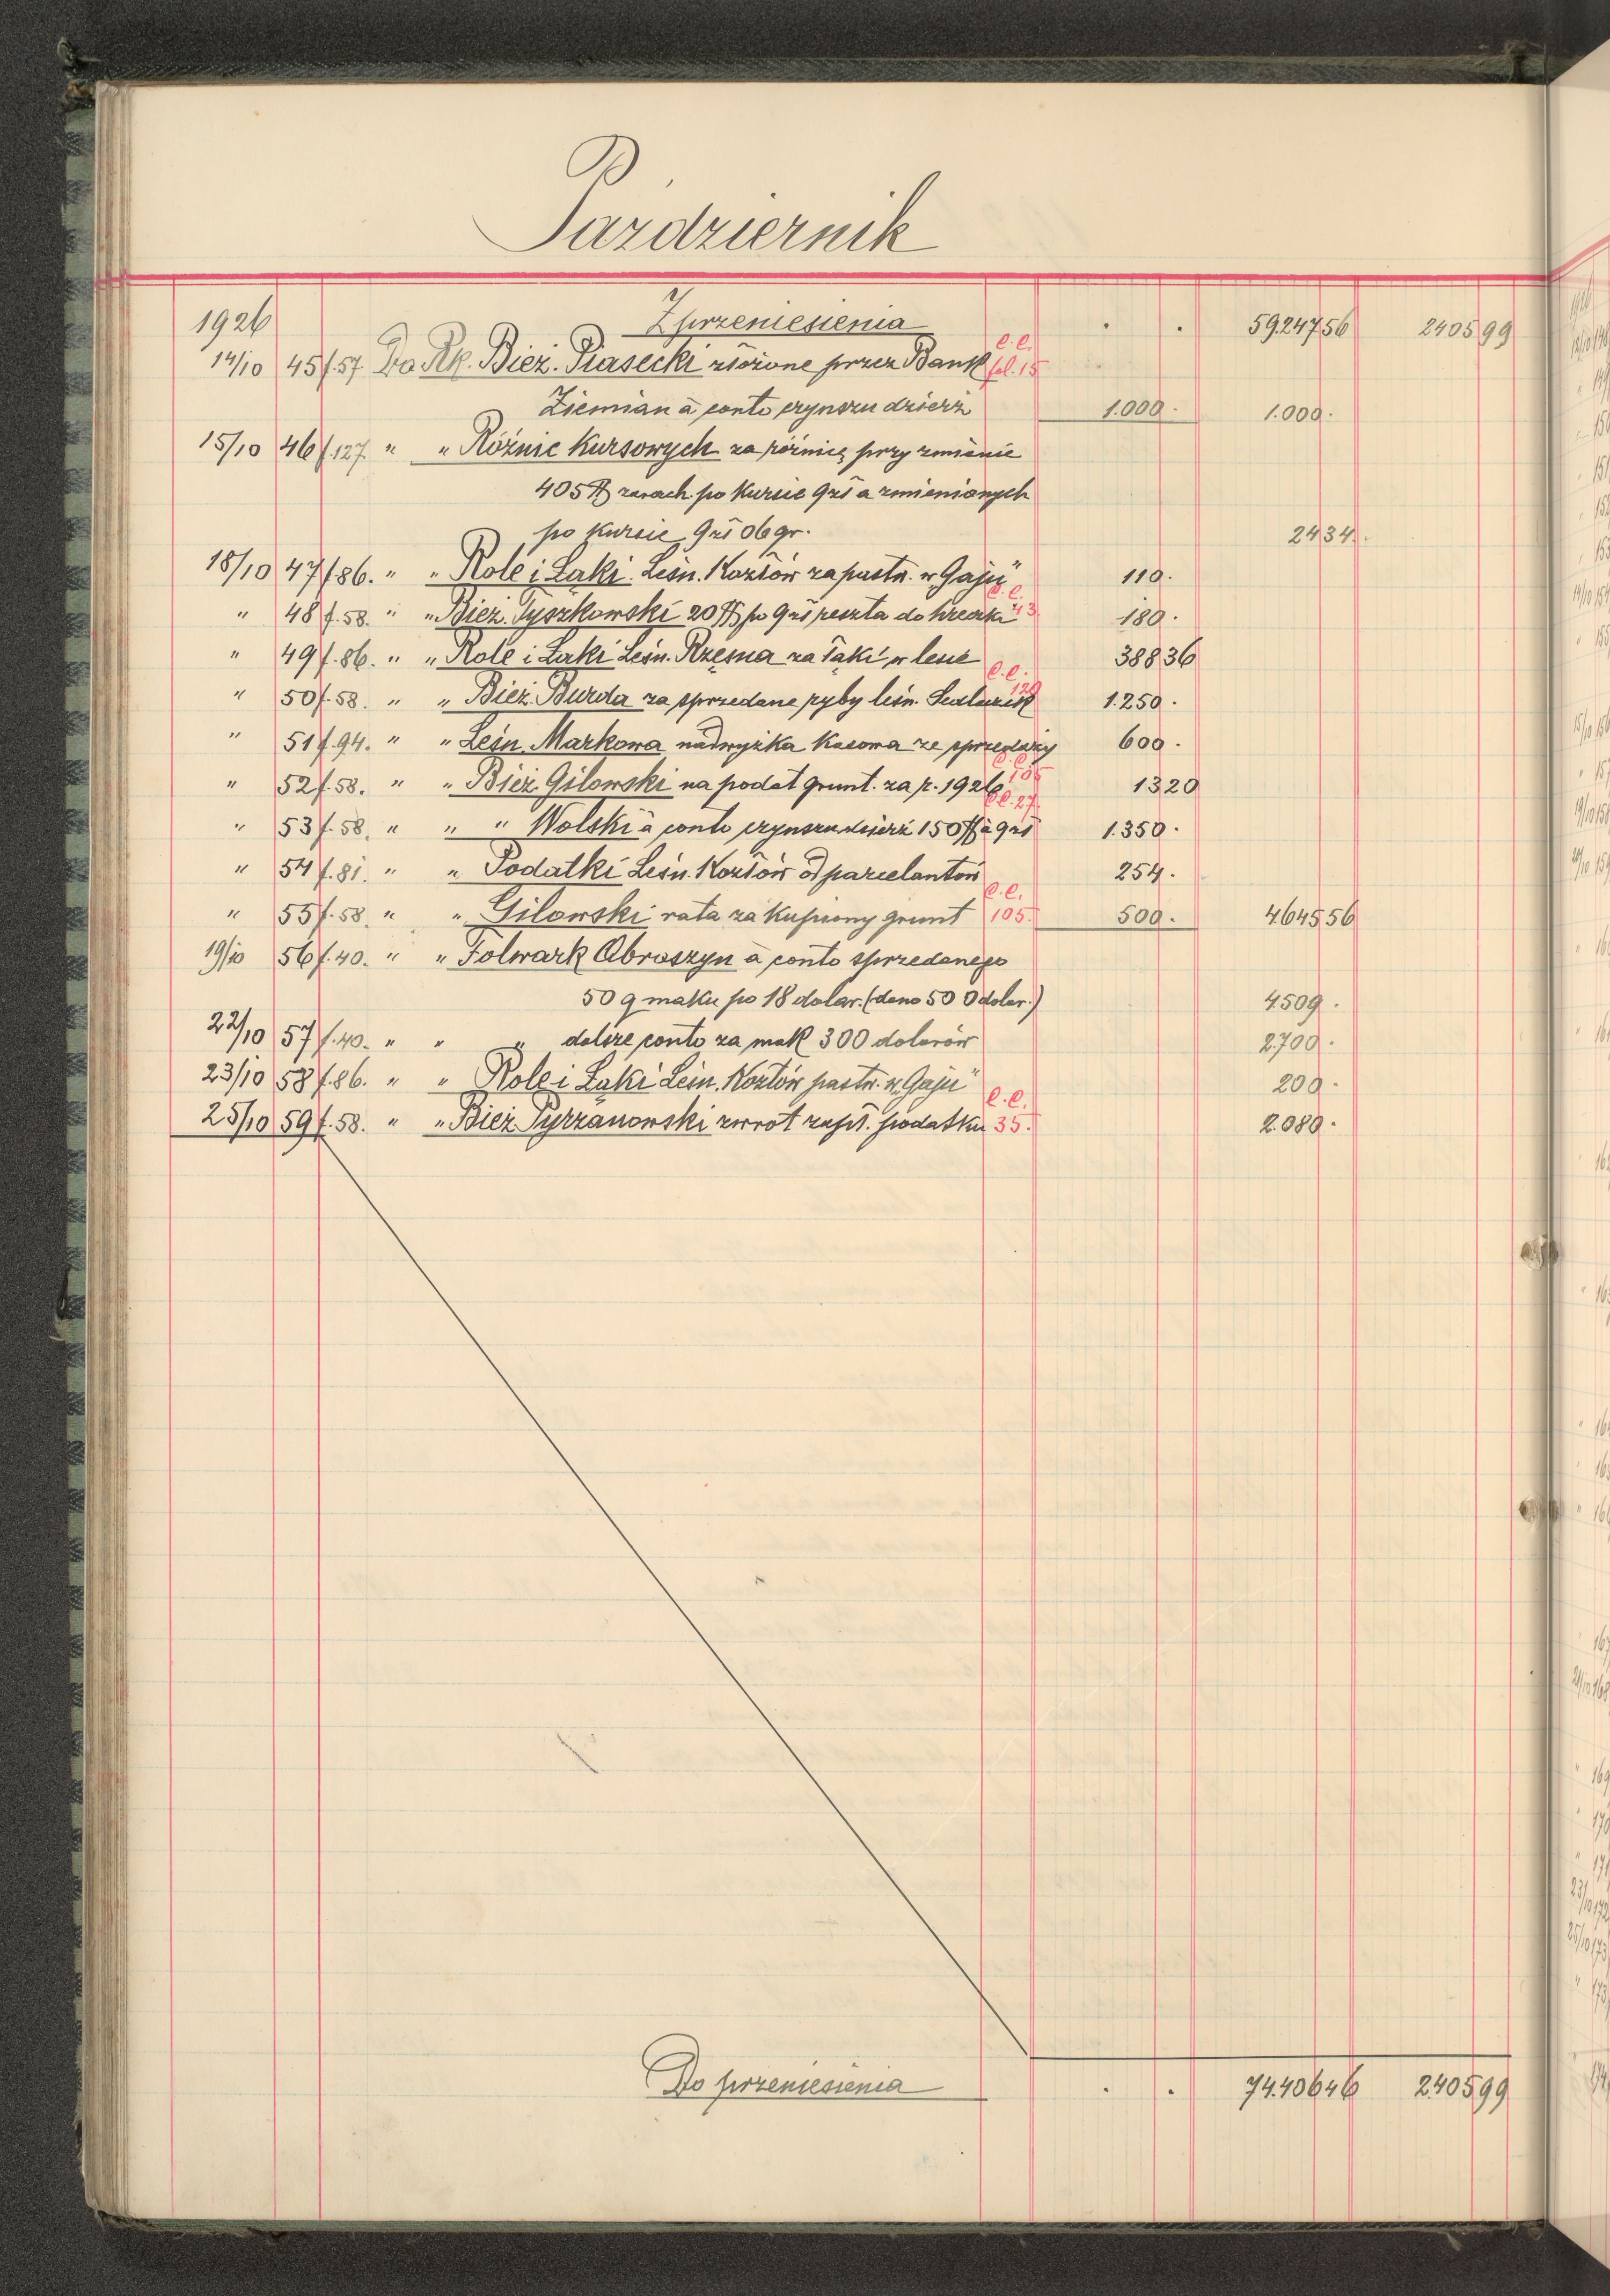 Październik
1926 Z przeniesienia . . 59.247 56 2405 99
14/10 45 f.57 Do Rk. Bież. Piasecki złożone przez Bank C.C. fol. 15
Ziemian à conto czynszu dzierż 1.000 . 1.000 .
15/10 46 f.127. " " Różnic Kursowych za różnicę przy zmianie
405 $ zarach. po Kursie 9 zł a zmienionych
po Kursie 9 zł 06 gr. 24 34.
18/10 47 f.86. " " Role i Łąki. Leśn. Kozłów za pastw. w "Gaju" 110 .
" 48 f.58. " " Bież. Tyszkowski 20 $ po 9 zł reszta do hreczki C.C. 43 180 .
" 49 f.86. " " Role i Łąki Leśn. Rzęsna za łąki w lesie 388 36
" 50 f.58. " " Bież. Burda za sprzedane ryby leśn. C.C. 120 1.250 .
" 51 f.94. " " Leśn. Markowa nadwyżka Kasowa ze sprzedaży 600 .
" 52 f.58. " " Bież. Gilowski na podat grunt. za r. 1926 C.C. 105 13 20
" 53 f.58. " " " Wolski à conto czynszu dzierż 150 $ à 9 zł C.C. 27. 1.350 .
" 54 f.81. " " Podatki Leśn. Kozłów od parcelantów 254 .
" 55 f.58. " " Gilowski rata za Kupiony grunt C.C. 105. 500 . 4.645 56
19/10 56 f.40. " " Folwark Obroszyn à conto sprzedanego
50 q maku po 18 dolar. (dano 500 dolar.) 4.509 .
22/10 57 f.40. " " " dalsze conto za mak 300 dolarów 2.700 .
23/10 58 f.86. " " Role i Łąki Leśn. Kozłów pastw. w "Gaju" 200 .
25/10 59 f.58. " " Bież. Pyrzanowski zwrot zapł. podatku C.C. 35. 2.080 .
Do przeniesienia . . 74.406 46 2.405 99